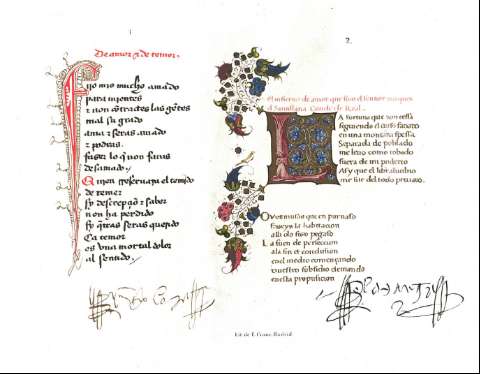 1
De amor & de temor.
Fijo mio mucho amado
para mientes
& non contrastes las gentes
mal su grado
ama & seras amado
& podras
fazer lo q̃ non faras
desamado
Quien reseruara el temido
de temer
sy discreçiõ & saber
non ha perdido
sy q̃rras seras querido
Ca temor
es vna mortal dolor
al sentido
2.
El infierno de amor que fizo el sennor marques
de Santillana Conde del Real
La fortuna que non cessa
siguiendo el curso fadado
en una montaña espessa
Separada de poblado
me leuo como robado
fuera de mi poderio
Asy que el libre aluedrio
me fue del todo priuado
O vos musas que en parnaso
fazeys la habitacion
alli do fizo pegaso
La fuen de perfeccion
ala fin et conclusion
en el medio començando
vuestro subsidio demando
en esta proposicion
Lit. de E.